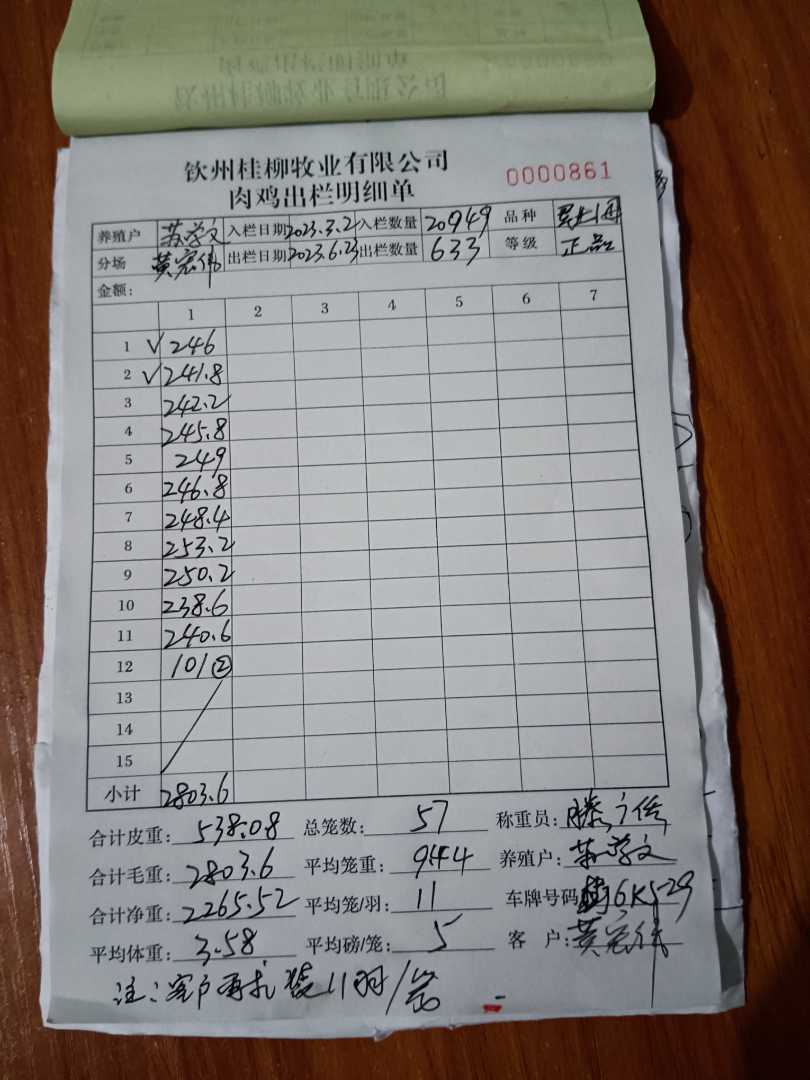 钦州桂柳牧业有限公司
肉鸡出栏明细单
0000861
养殖户 苏学文 入栏日期 2023.3.2 入栏数量 20949 品种
分场 黄宏伟 出栏日期 2023.6.23 出栏数量 633 等级 正品
金额:
1 2 3 4 5 6 7
1 √ 246
2 √ 241.8
3 242.2
4 245.8
5 249
6 246.8
7 248.4
8 253.2
9 250.2
10 238.6
11 240.6
12 101②
13
14
15
小计 2803.6
合计皮重: 538.08 总笼数: 57 称重员:
合计毛重: 2803.6 平均笼重: 9.44 养殖户: 苏学文
合计净重: 2265.52 平均笼/羽: 11 车牌号码 6K529
平均体重: 3.58 平均磅/笼: 5 客 户: 黄宏伟
注:客户要求装11羽/笼